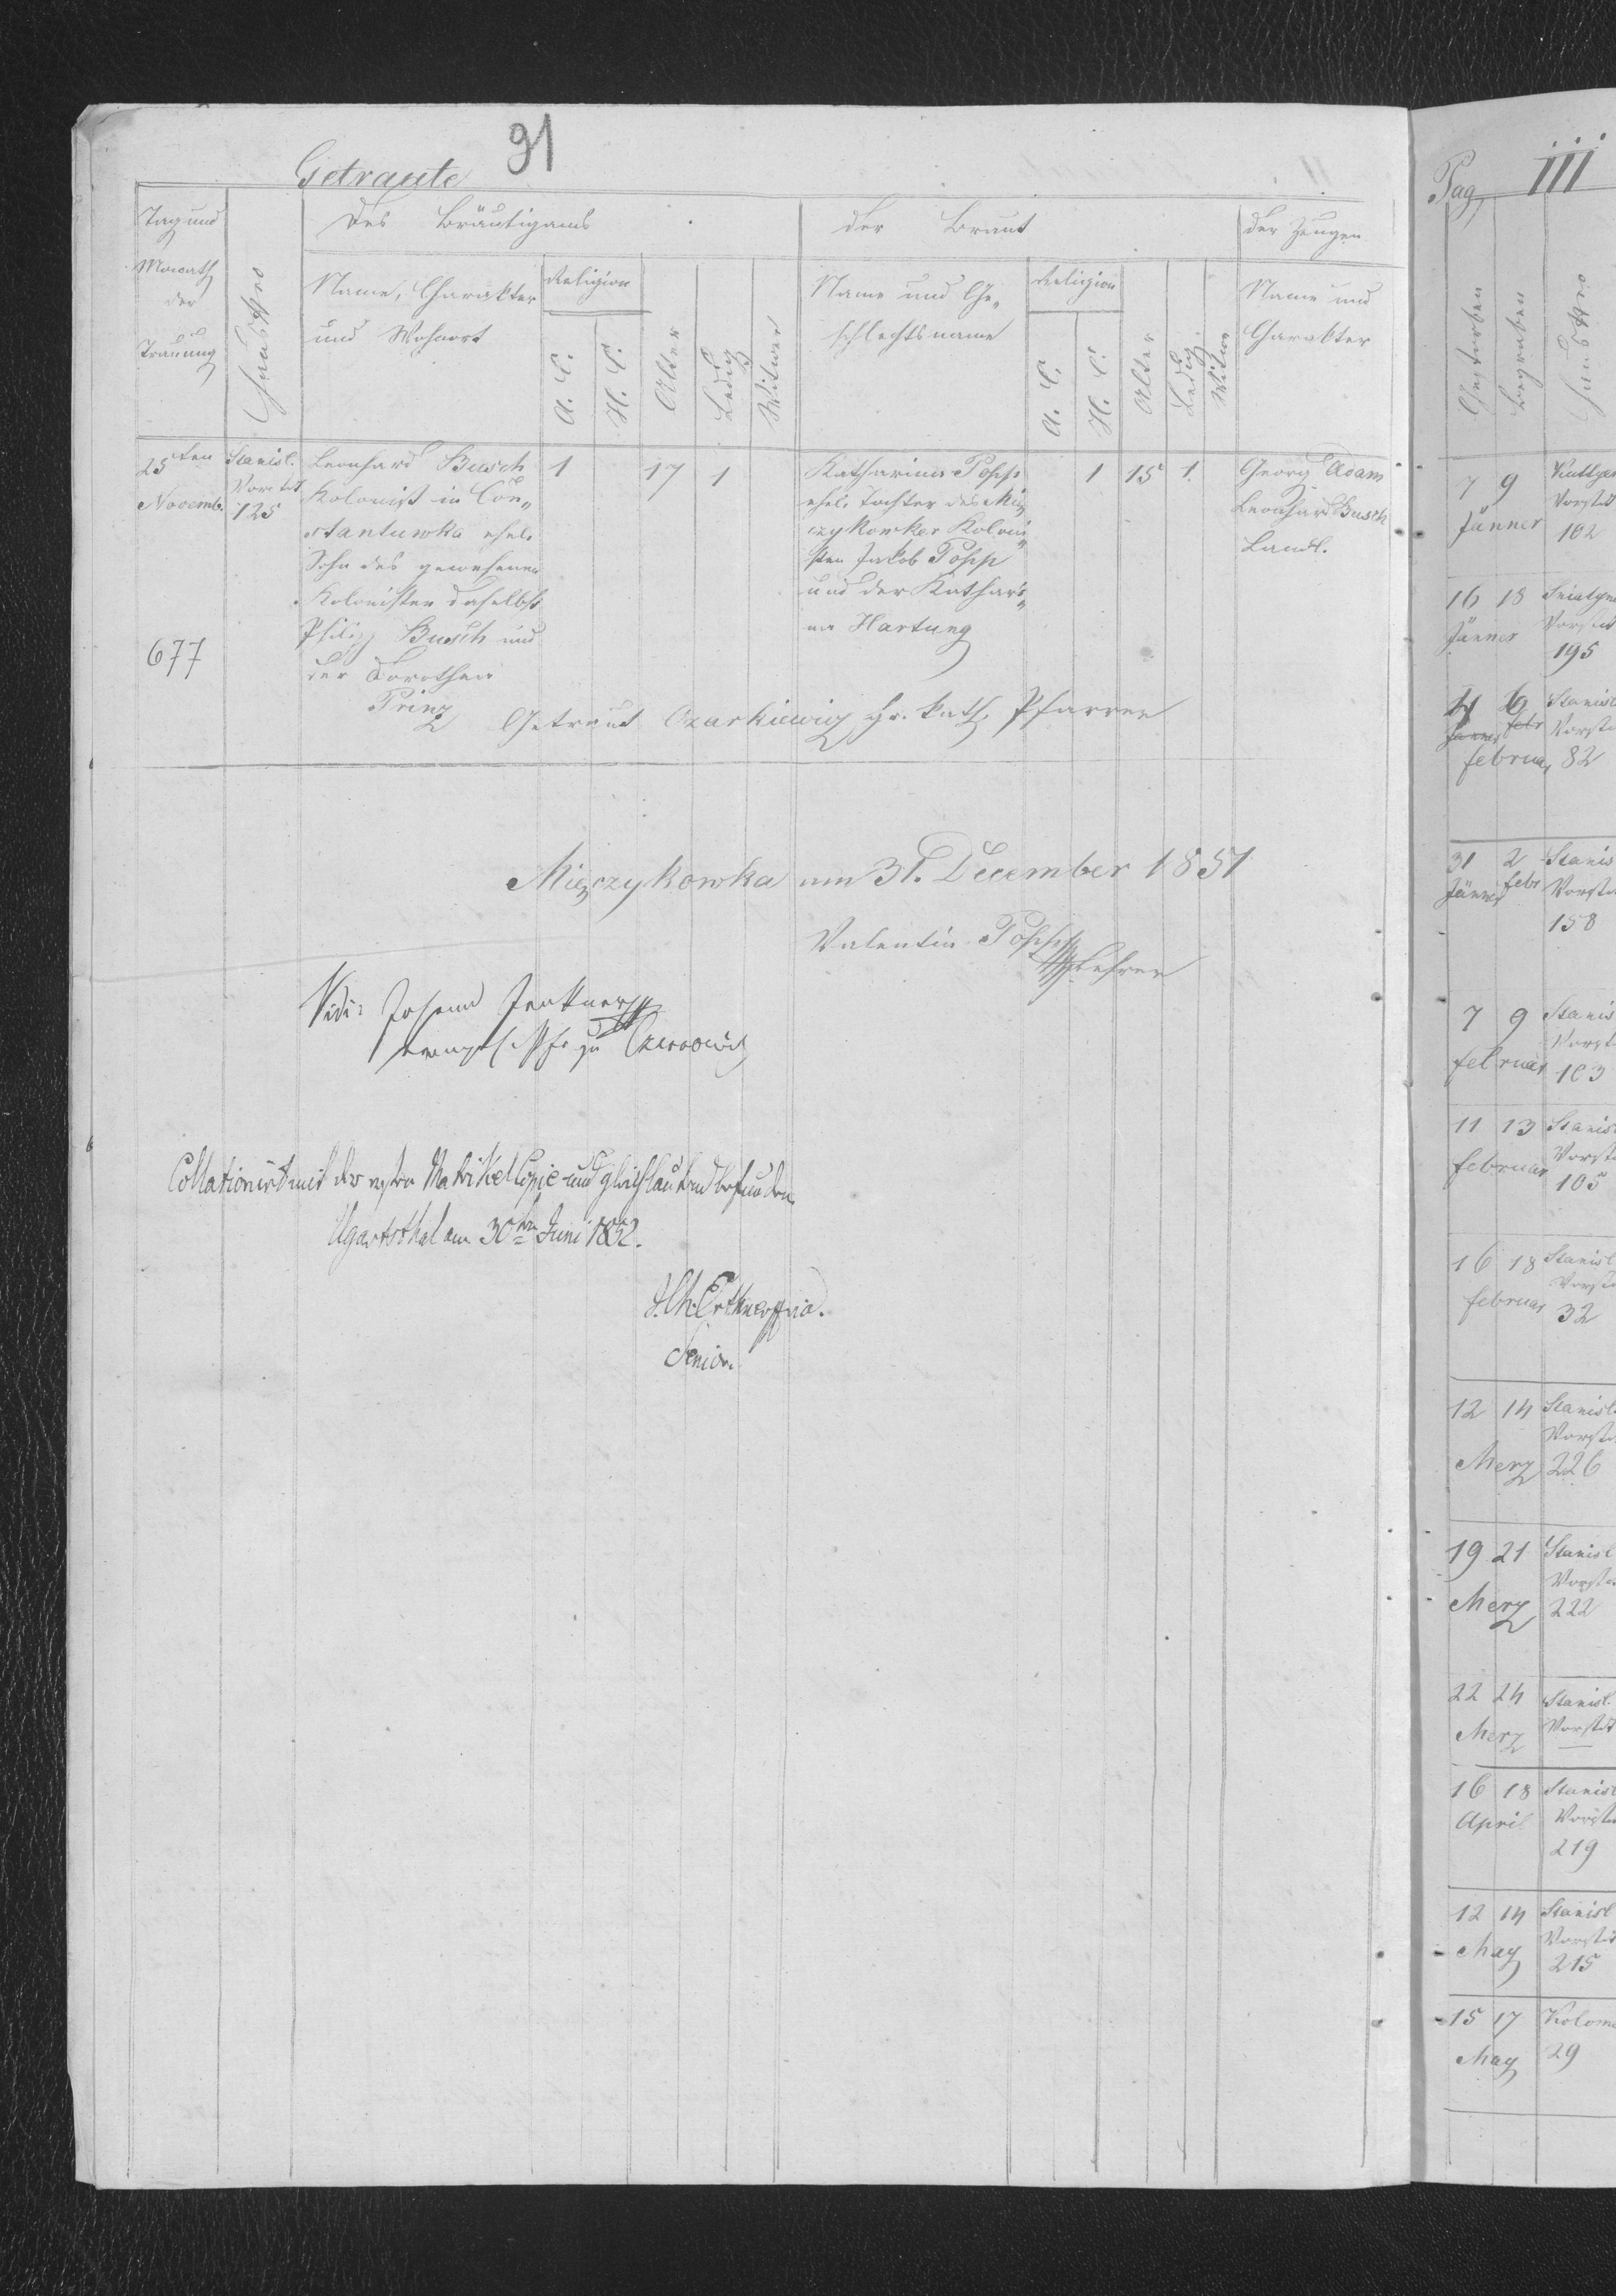 91
Getraute
Tag und
Monath
der
Trauung
Haus Nro
Des Bräutigams
Name, Charakter
und Wohnort
Religion
A. C.
H. C.
Alter
Ledig
Witwer
der Braut
Name und Ge„
schlechtsname
Religion
A. C.
H. C.
Alter
Ledig
Witwe
der Zeugen
Name und
Charakter
25ten
Novemb.
677
Stanisl.
Vorstdt
125
Leonhard Busch
Kolonist in Con„
stantuwka ehel.
Sohn des gewesenen
Kolonisten daselbst
Philipp Busch und
der Dorothea
Prinz
1
17
1
Katharina Popp
ehel. Tochter des Mię
czykowker Koloni„
sten Jakob Popp
und der Kathari„
na Hartung
1
15
1.
Georg Adam
Leonhard Busch
Landl.
Getraut Ozarkiewicz gr. kath. Pfarrer
Mięczykowka am 31. December 1851
Valentin Popp
Lehrer
Vidi: Josef Jenkner
evangel. Pfr zu Czernowitz
Collationirt mit der ersten Matrikel Copie und gleichlautend befunden
Ugartsthal am 30ten Juni 1852.
Senior.
Pag III
Gestorben
Begraben
Haus Nro
7 9
Jänner
Vorstdt
102
16 18
Jänner
Sniatyn
Vorstdt
195
4 6
Jänner febr
februar
Stanisl
Vorst
82
31 2
Jänner febr
Stanis
Vorst
158
7 9
februar
Stanis
Vorst
103
11 13
februar
Stanisl
Vorst
105
16 18
februar
Stanisl
Vorst
32
12 14
Merz
Stanisl.
Vorst
226
19 21
Merz
Stanisl
Vorst
222
22 24
Merz
Stanisl.
Vorstdt
16 18
April
Stanisl
Vorst
219
12 14
May
Stanisl
Vorstd
215
15 17
May
Kolome
29